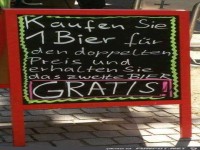 Kaufen Sie
1 Bier für
den doppelten
Preis und
erhalten Sie
das zweite BIER
GRATIS!